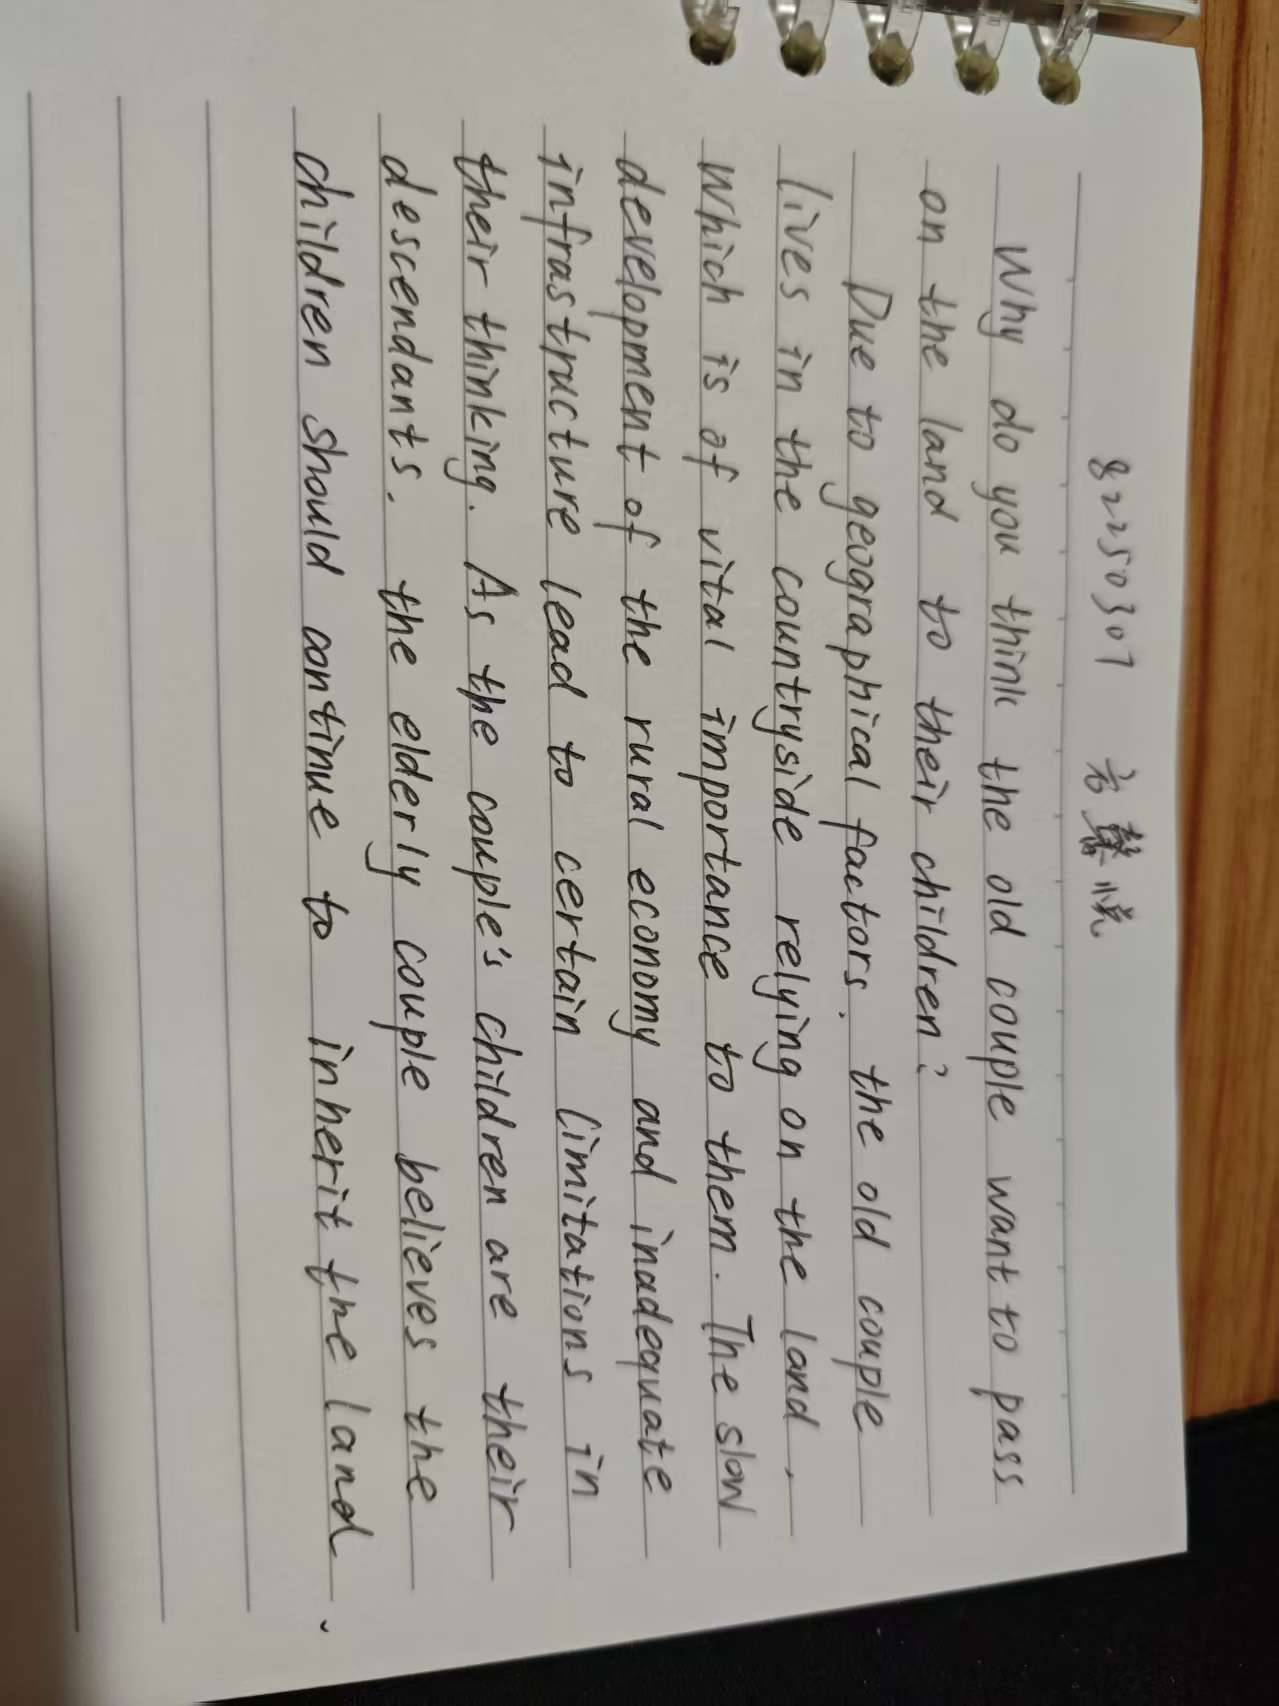 82250307 方馨悦
Why do you think the old couple want to pass
on the land to their children?
Due to geographical factors. the old couple
lives in the countryside relying on the land,
which is of vital importance to them. The slow
development of the rural economy and inadequate
infrastructure lead to certain limitations in
their thinking. As the couple's children are their
descendants. the elderly couple believes the
children should continue to inherit the land.